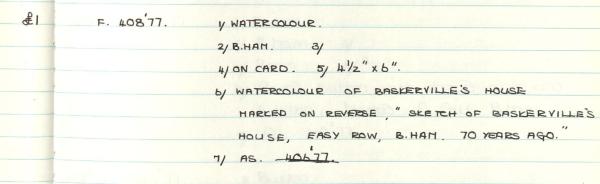 £1 F. 408'77. 1/ WATERCOLOUR.
2/ B.HAM. 3/
4/ ON CARD. 5/ 4½" x 6".
6/ WATERCOLOUR OF BASKERVILLE'S HOUSE
MARKED ON REVERSE, "SKETCH OF BASKERVILLE'S
HOUSE, EASY ROW, B.HAM. 70 YEARS AGO."
7/ AS. 406'77.